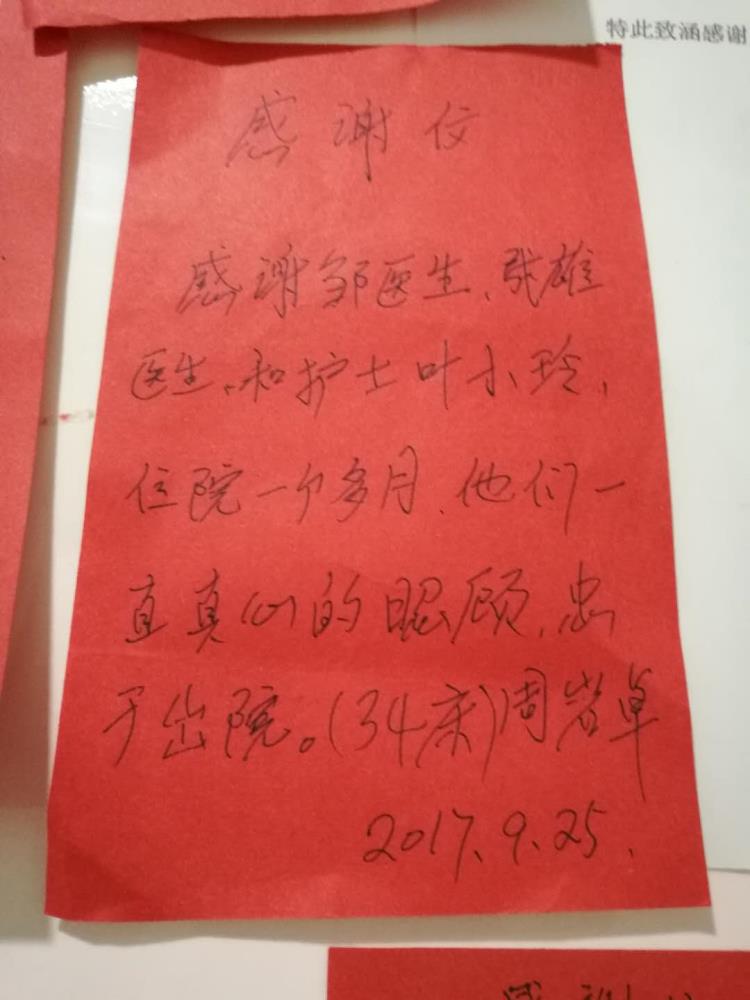 特此致涵感谢
感谢信
感谢邹医生、张雄
医生、和护士叶小玲,
住院一个多月、他们一
直真心的照顾、忠
于出院。(34床)周岩卓
2017.9.25.
感谢